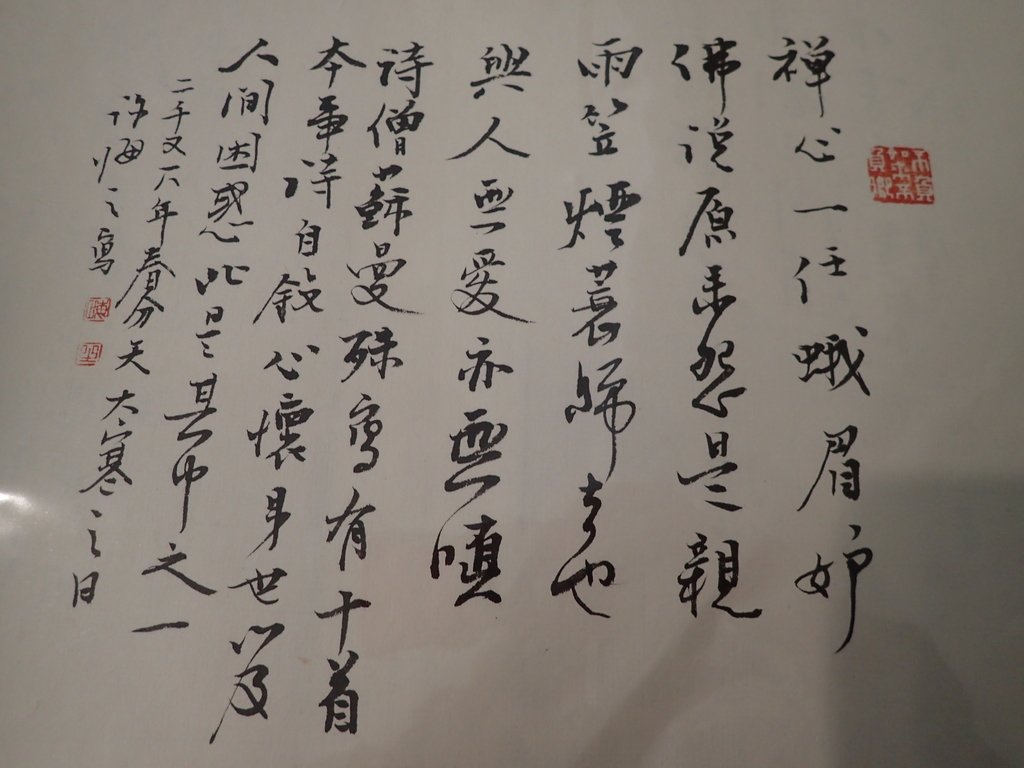 禪心一任蛾眉妒
佛說原來怨是親
雨笠煙蓑歸去也
與人無愛亦無嗔
詩僧蘇曼殊寫有十首
本事詩自敘心懷身世以及
人間困惑此是其中之一
二千又一八年春分天大寒之日
許悔之寫